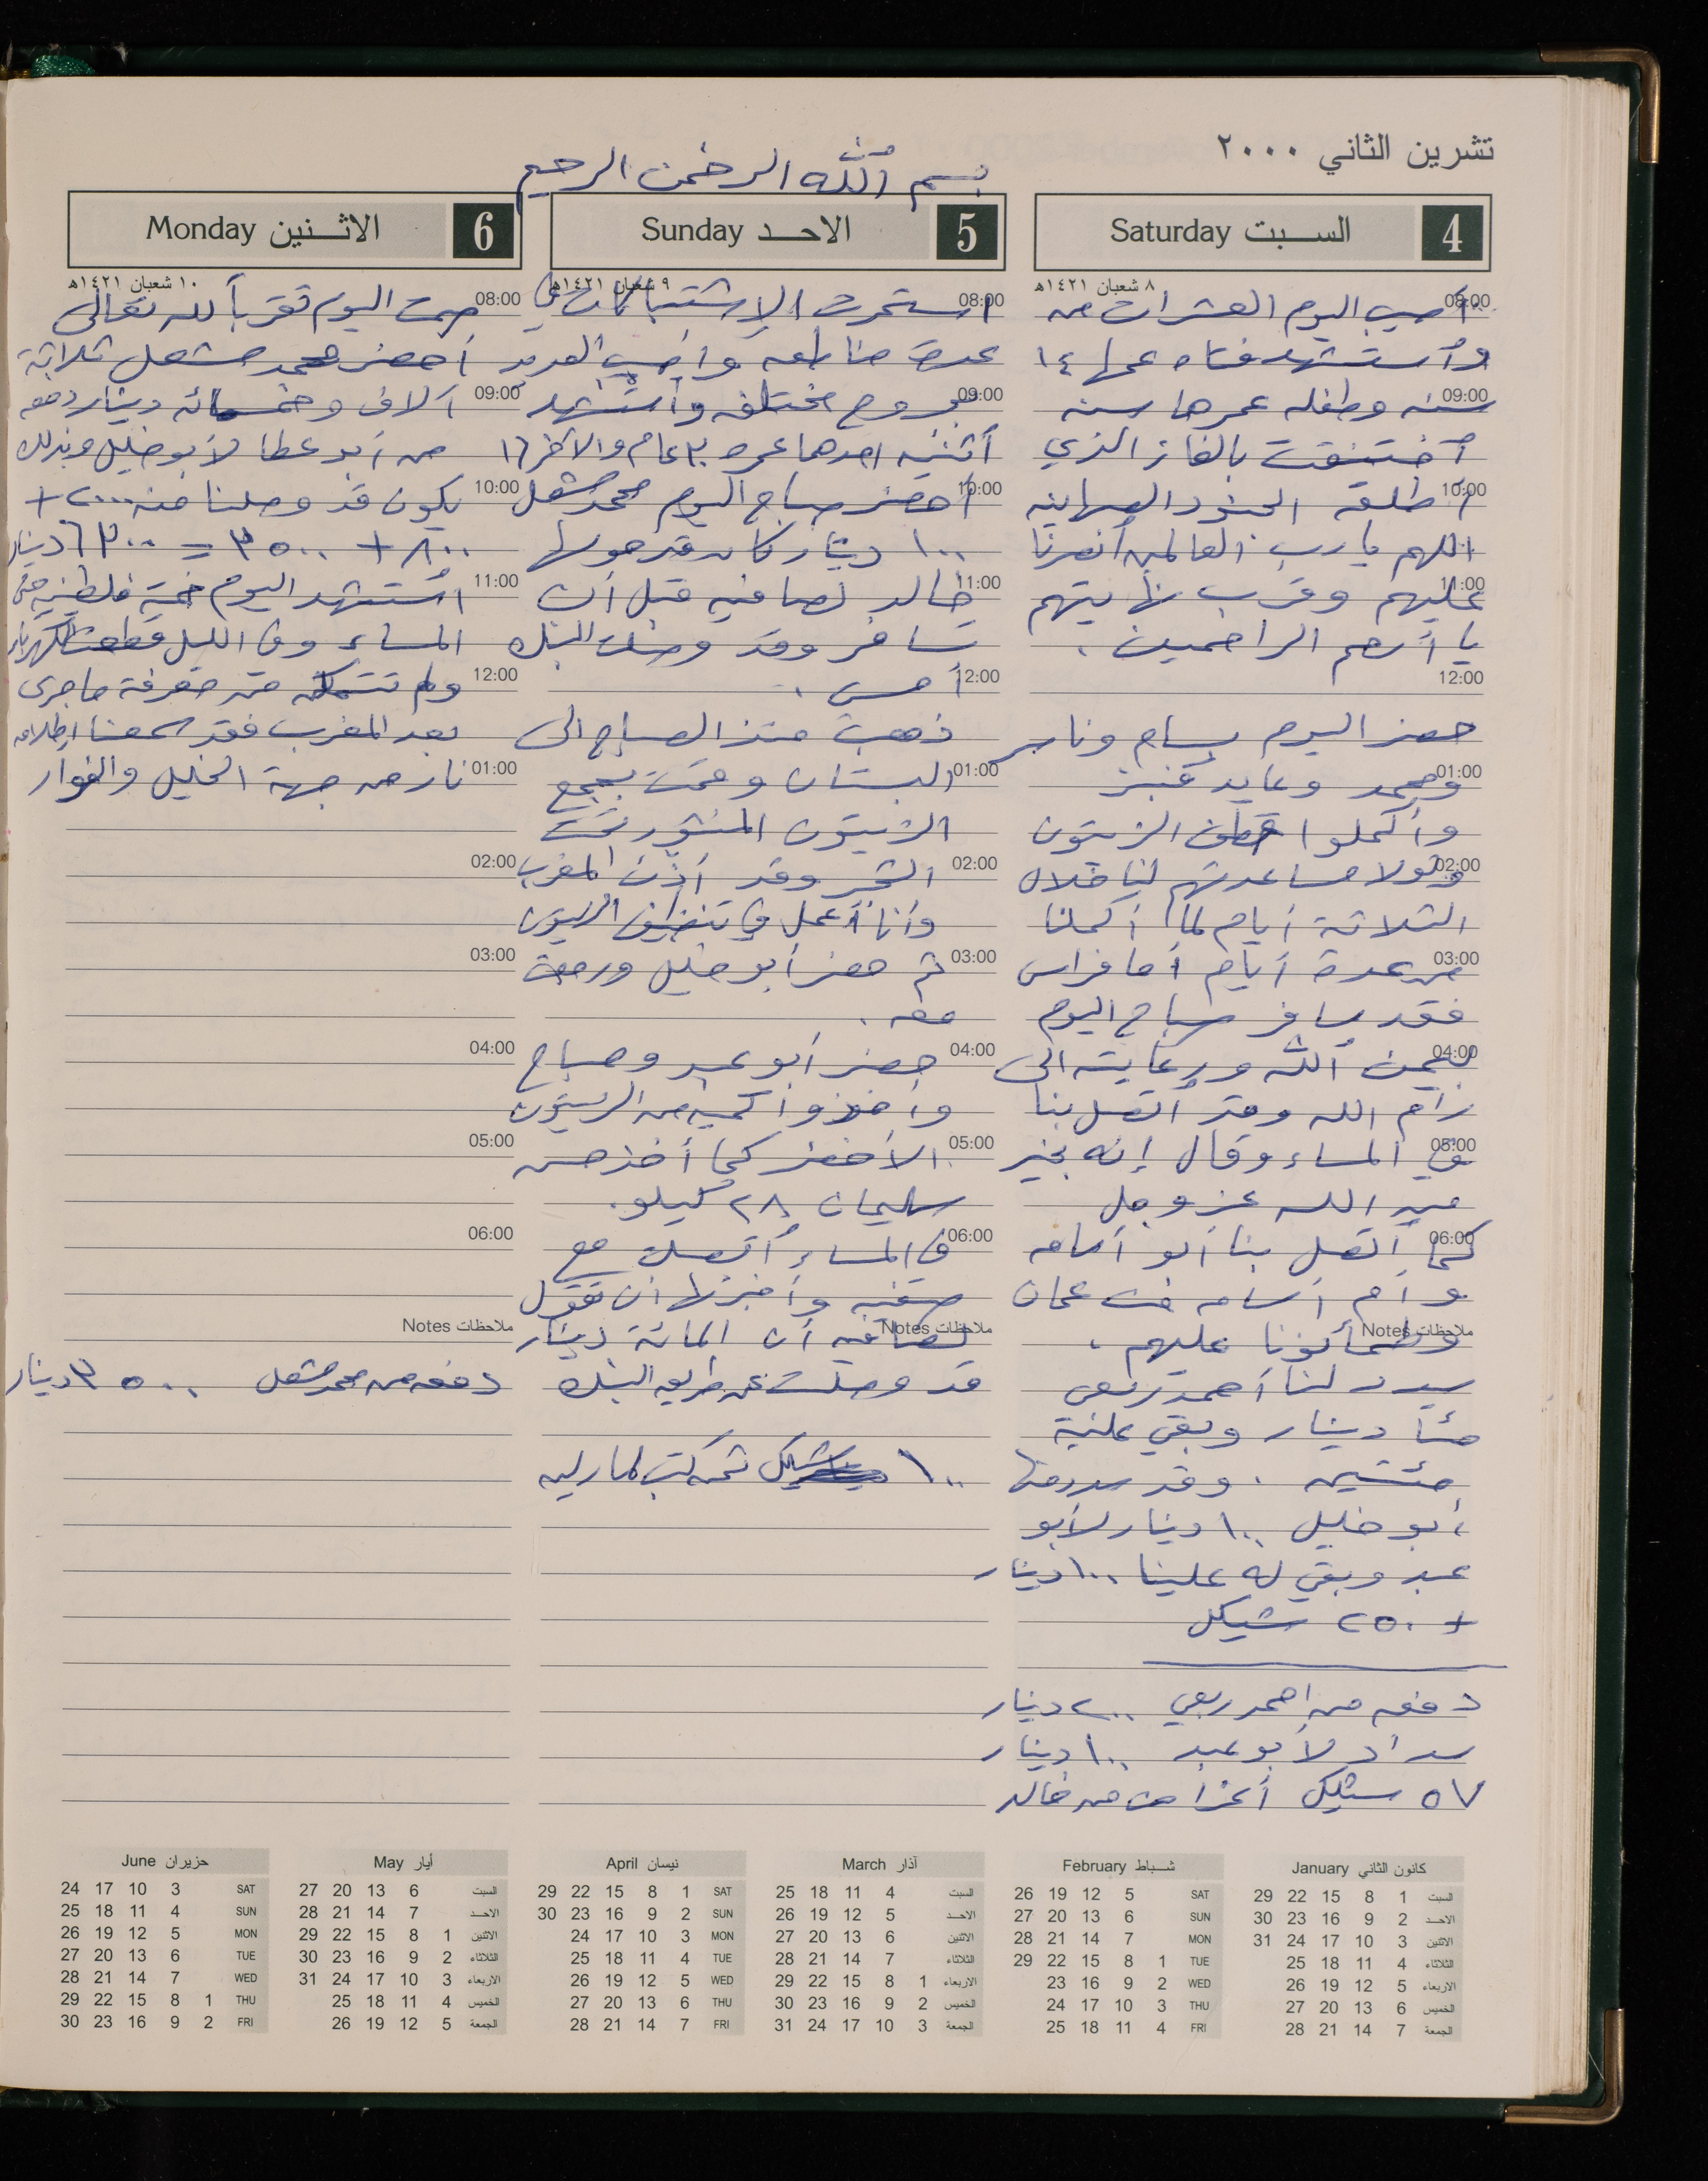 تشرين الثاني ٢٠٠٠
بسم الله الرحمن الرحيم
4 السبت Saturday
٨ شعبان ١٤٢١هـ
08:00 أصيب اليوم العشرات منه
وأستشهد فتاه عمرها ١٤
09:00 سنه وطفله عمرها سنه
أختنقت بالغاز الذي
10:00 أطلقه الجنود الصهاينه
اللهم يا رب العالمين أنصرنا
11:00 عليهم وقرب نهايتهم
يا أرحم الراحمين .
12:00
حضر اليوم بسام وناصر
01:00 ومحمد وعايد
وأكملوا قطف الزيتون
02:00 ولولا مساعدتهم لنا خلال
الثلاثة أيام لما أكملنا
03:00 من عدة أيام أما فراس
فقد سافر صباح اليوم
04:00 بيمن الله ورعايته الى
رام الله وقد أتصل بنا
05:00 في المساء وقال إنه بخير
من الله عز وجل
06:00 كما أتصل بنا أبو أسامه
وأم أسامه من عمان
ملاحظات Notes وطمأنونا عليهم .
سدد لنا أحمد ربعي
مئتا دينار وبقي عليه
مئتين . وقد سدد منها
أبو خليل ١٠٠ دينار لأبو
عبد وبقي له علينا ١٠٠ دينار
+ ٢٥٠ شيكل
دفعه من احمد ربعي ٢٠٠ دينار
سداد لأبو عبد ١٠٠ دينار
٥٧ شيكل أغراض من خالد
5 الاحد Sunday
٩ شعبان ١٤٢١هـ
08:00 استمرت الإشتباكات في
عدة مناطق وأصيب العديد
09:00 بجروح مختلفه وأستشهد
أثنين احدهما عمره ٢٠ عام والآخر ١٦
10:00 أحضر صباح اليوم محمد مشعل
١٠٠ دينار كان قد حولها
11:00 خالد لصافيه قبل أن
تسافر وقد وصلت البنك
12:00 أمس .
ذهبت منذ الصباح الى
01:00 البستان وقمت بجمع
الزيتون المنثور تحت
02:00 الشجر وقد أذن المغرب
وأنا أعمل في تنظيف الزيتون
03:00 ثم حضر أبو خليل ورجعت
معه .
04:00 حضر أبو عبد وصباح
وأخذوا كميه من الزيتون
05:00 الأخضر كما أخذ حسن
سليمان ٢٨ كيلو.
06:00 في المساء أتصلت مع
صفيه وأخبرتها أن تقول
ملاحظات Notes لصافيه أن المائة دينار
قد وصلت عن طريق البنك
١٠٠ شيكل ثمن كتب لماريه
6 الاثنين Monday
١٠ شعبان ١٤٢١هـ
08:00 صمت اليوم تقرباً لله تعالى
أحضر محمد مشعل ثلاثة
09:00 آلاف وخمسمائه دينار دفعه
من أبو عطا لأبو خليل وبذلك
10:00 يكون قد وصلنا منه ٢٠٠٠ +
٨٠٠ + ٣٥٠٠ = ٦٣٠٠ دينار
11:00 استشهد اليوم خمسة فلسطينيين حتى
المساء وفي الليل قطعت الكهرباء
12:00 ولم نتمكن من معرفة ما جرى
بعد المغرب فقد سمعنا إطلاق
01:00 نار من جهة الخليل والفوار
02:00
03:00
04:00
05:00
06:00
ملاحظات Notes
دفعه من محمد مشعل ٣٥٠٠ دينار
كانون الثاني January
السبت 1 8 15 22 29
الاحد 2 9 16 23 30
الاثنين 3 10 17 24 31
الثلاثاء 4 11 18 25
الاربعاء 5 12 19 26
الخميس 6 13 20 27
الجمعة 7 14 21 28
شباط February
SAT 5 12 19 26
SUN 6 13 20 27
MON 7 14 21 28
TUE 1 8 15 22 29
WED 2 9 16 23
THU 3 10 17 24
FRI 4 11 18 25
آذار March
السبت 4 11 18 25
الاحد 5 12 19 26
الاثنين 6 13 20 27
الثلاثاء 7 14 21 28
الاربعاء 1 8 15 22 29
الخميس 2 9 16 23 30
الجمعة 3 10 17 24 31
نيسان April
SAT 1 8 15 22 29
SUN 2 9 16 23 30
MON 3 10 17 24
TUE 4 11 18 25
WED 5 12 19 26
THU 6 13 20 27
FRI 7 14 21 28
أيار May
السبت 6 13 20 27
الاحد 7 14 21 28
الاثنين 1 8 15 22 29
الثلاثاء 2 9 16 23 30
الاربعاء 3 10 17 24 31
الخميس 4 11 18 25
الجمعة 5 12 19 26
حزيران June
SAT 3 10 17 24
SUN 4 11 18 25
MON 5 12 19 26
TUE 6 13 20 27
WED 7 14 21 28
THU 1 8 15 22 29
FRI 2 9 16 23 30